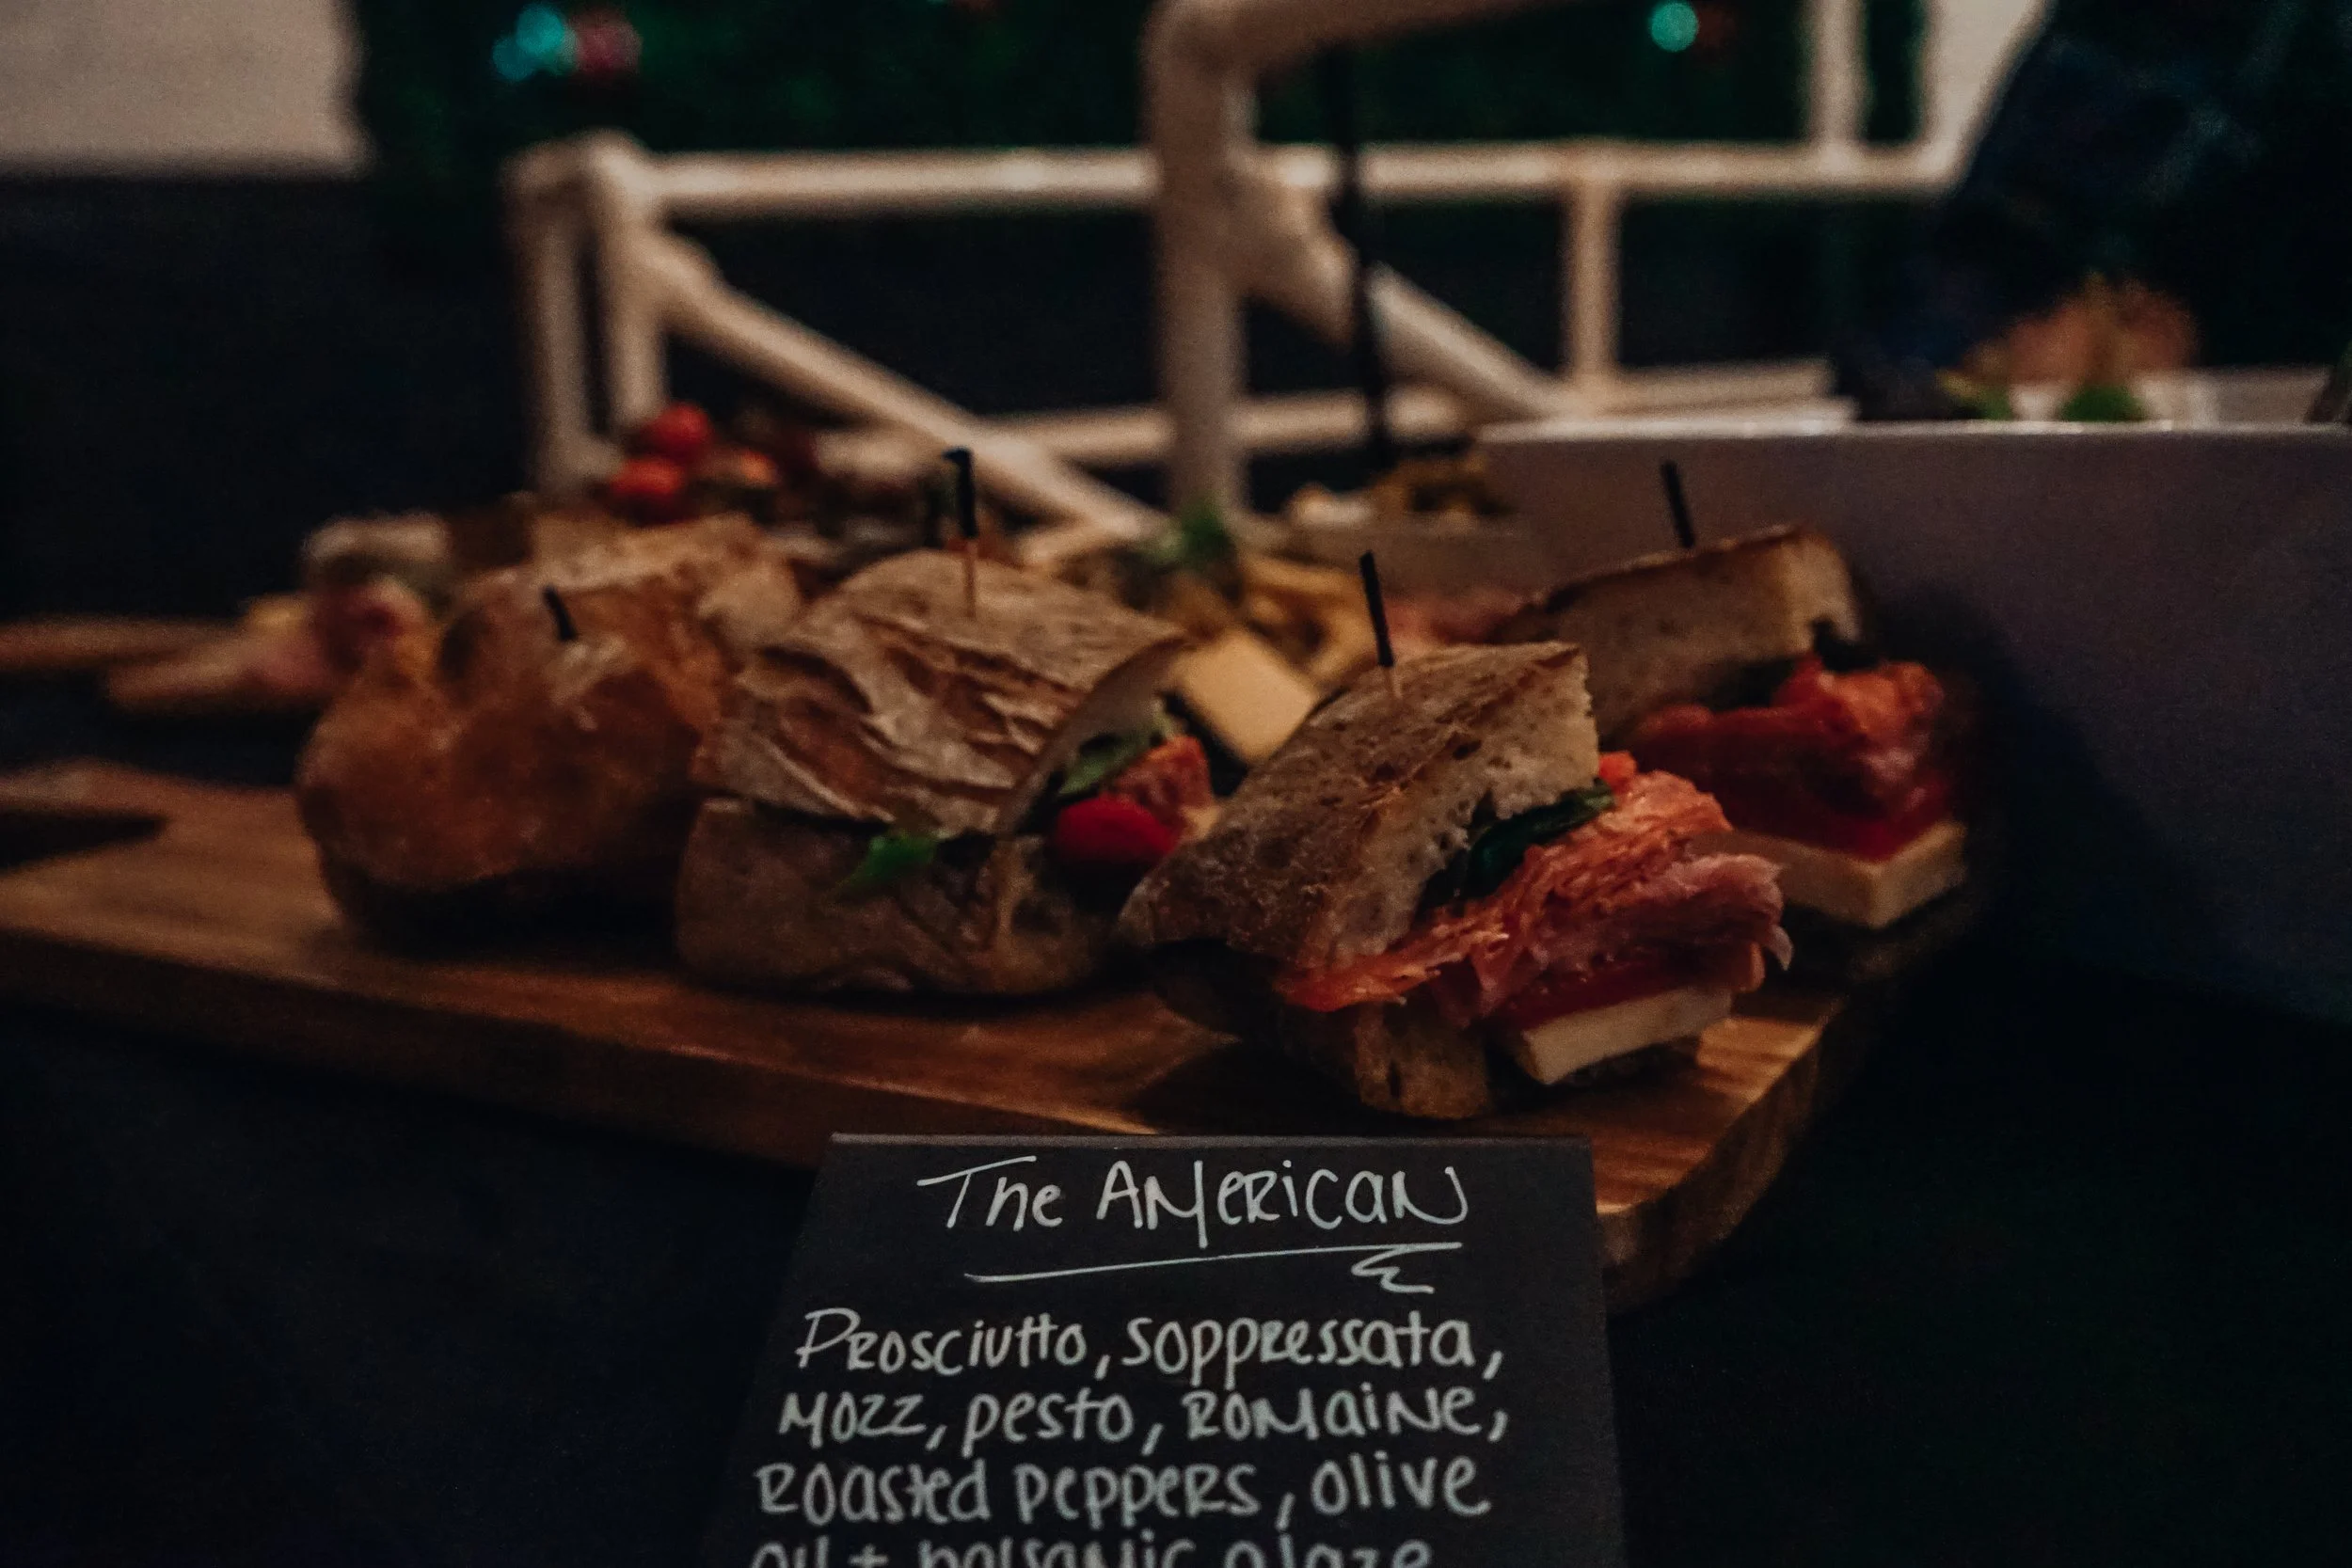 The American
Prosciutto, soppressata,
Mozz, pesto, Romaine,
Roasted peppers, olive
oil + balsamic glaze